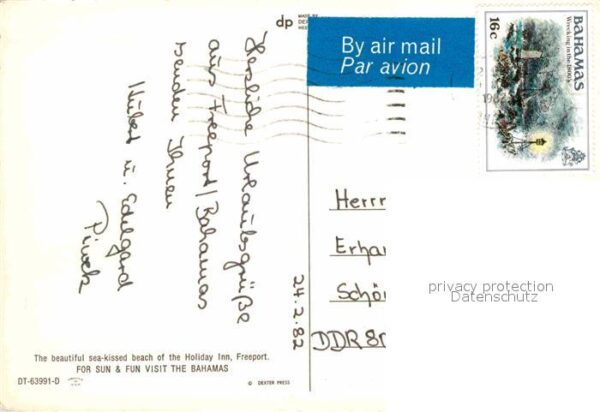 dp
MADE BY
DEX
By air mail
Par avion
BAHAMAS
Wrecking in the 1800's
16c
Herzliche Urlaubsgrüße
aus Freeport/Bahamas
senden Ihnen
Hubert u. Edelgard
24.2.82
Herrn
Erha
Schö
DDR 8
privacy protection
Datenschutz
The beautiful sea-kissed beach of the Holiday Inn, Freeport.
FOR SUN & FUN VISIT THE BAHAMAS
DT-63991-D
© DEXTER PRESS